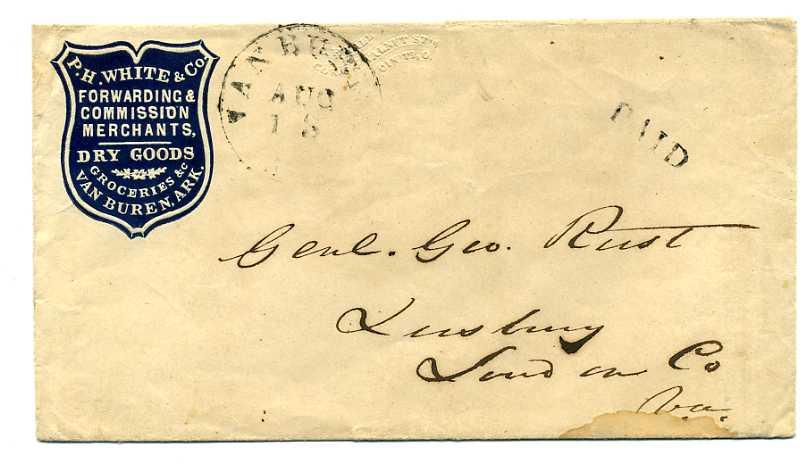 P.H. WHITE & Co.
FORWARDING &
COMMISSION
MERCHANTS,
DRY GOODS
GROCERIES &c
VAN BUREN, ARK.
VAN BUREN
AUG
18
PAID
Genl. Geo. Rust
Leesburg
Loudon Co
Va.